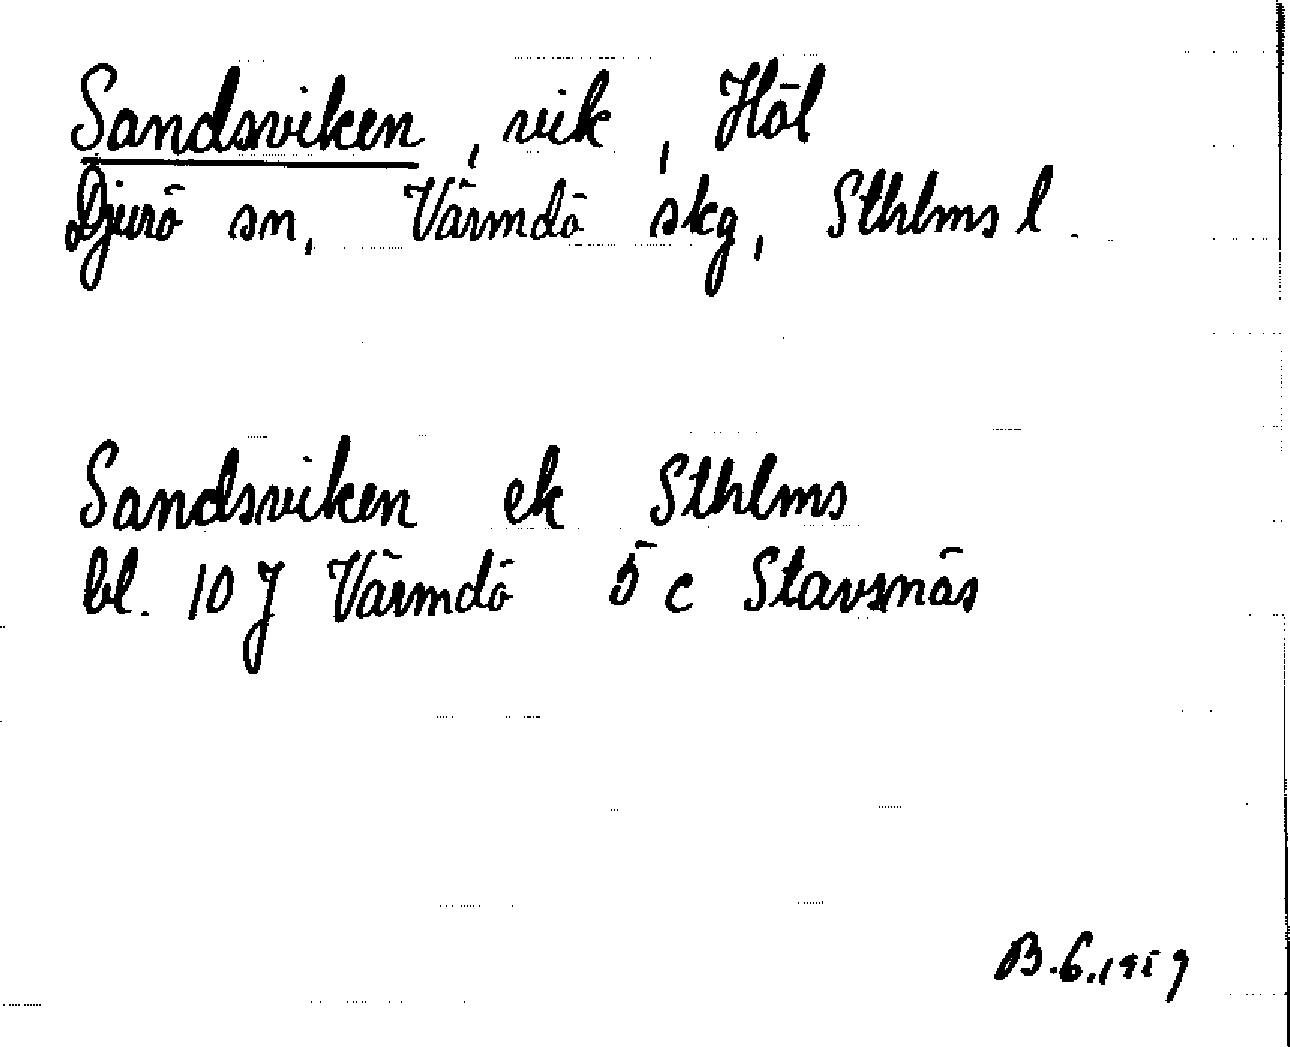 Sandsviken, vik, Höl
Djurö sn, Värmdö skg, Sthlms l.
Sandsviken ek Sthlms
bl. 10 J Värmdö 5 c Stavsnäs
B.G. 1959